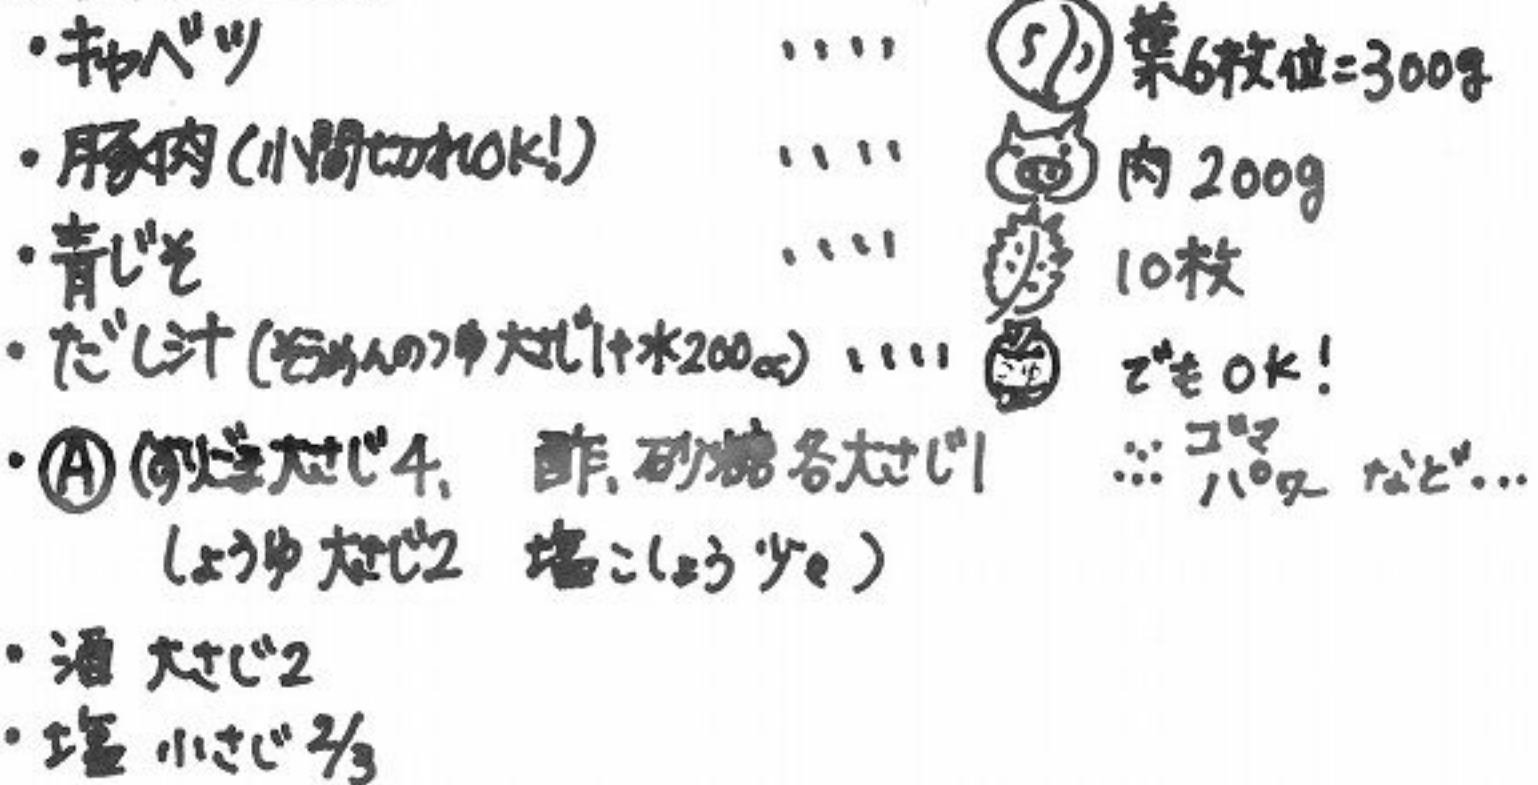 ・キャベツ ････ 葉6枚位=300g
・豚肉(小間切れOK!) ････ 肉 200g
・青じそ ････ 10枚
・だし汁(そうめんのつゆ大さじ1+水200cc) ････ つゆ でもOK!
・Ⓐ(すりごま大さじ4、 酢、砂糖各大さじ1 ∴ ゴマパワーなど…
しょうゆ大さじ2 塩こしょう少々)
・酒 大さじ2
・塩 小さじ2/3